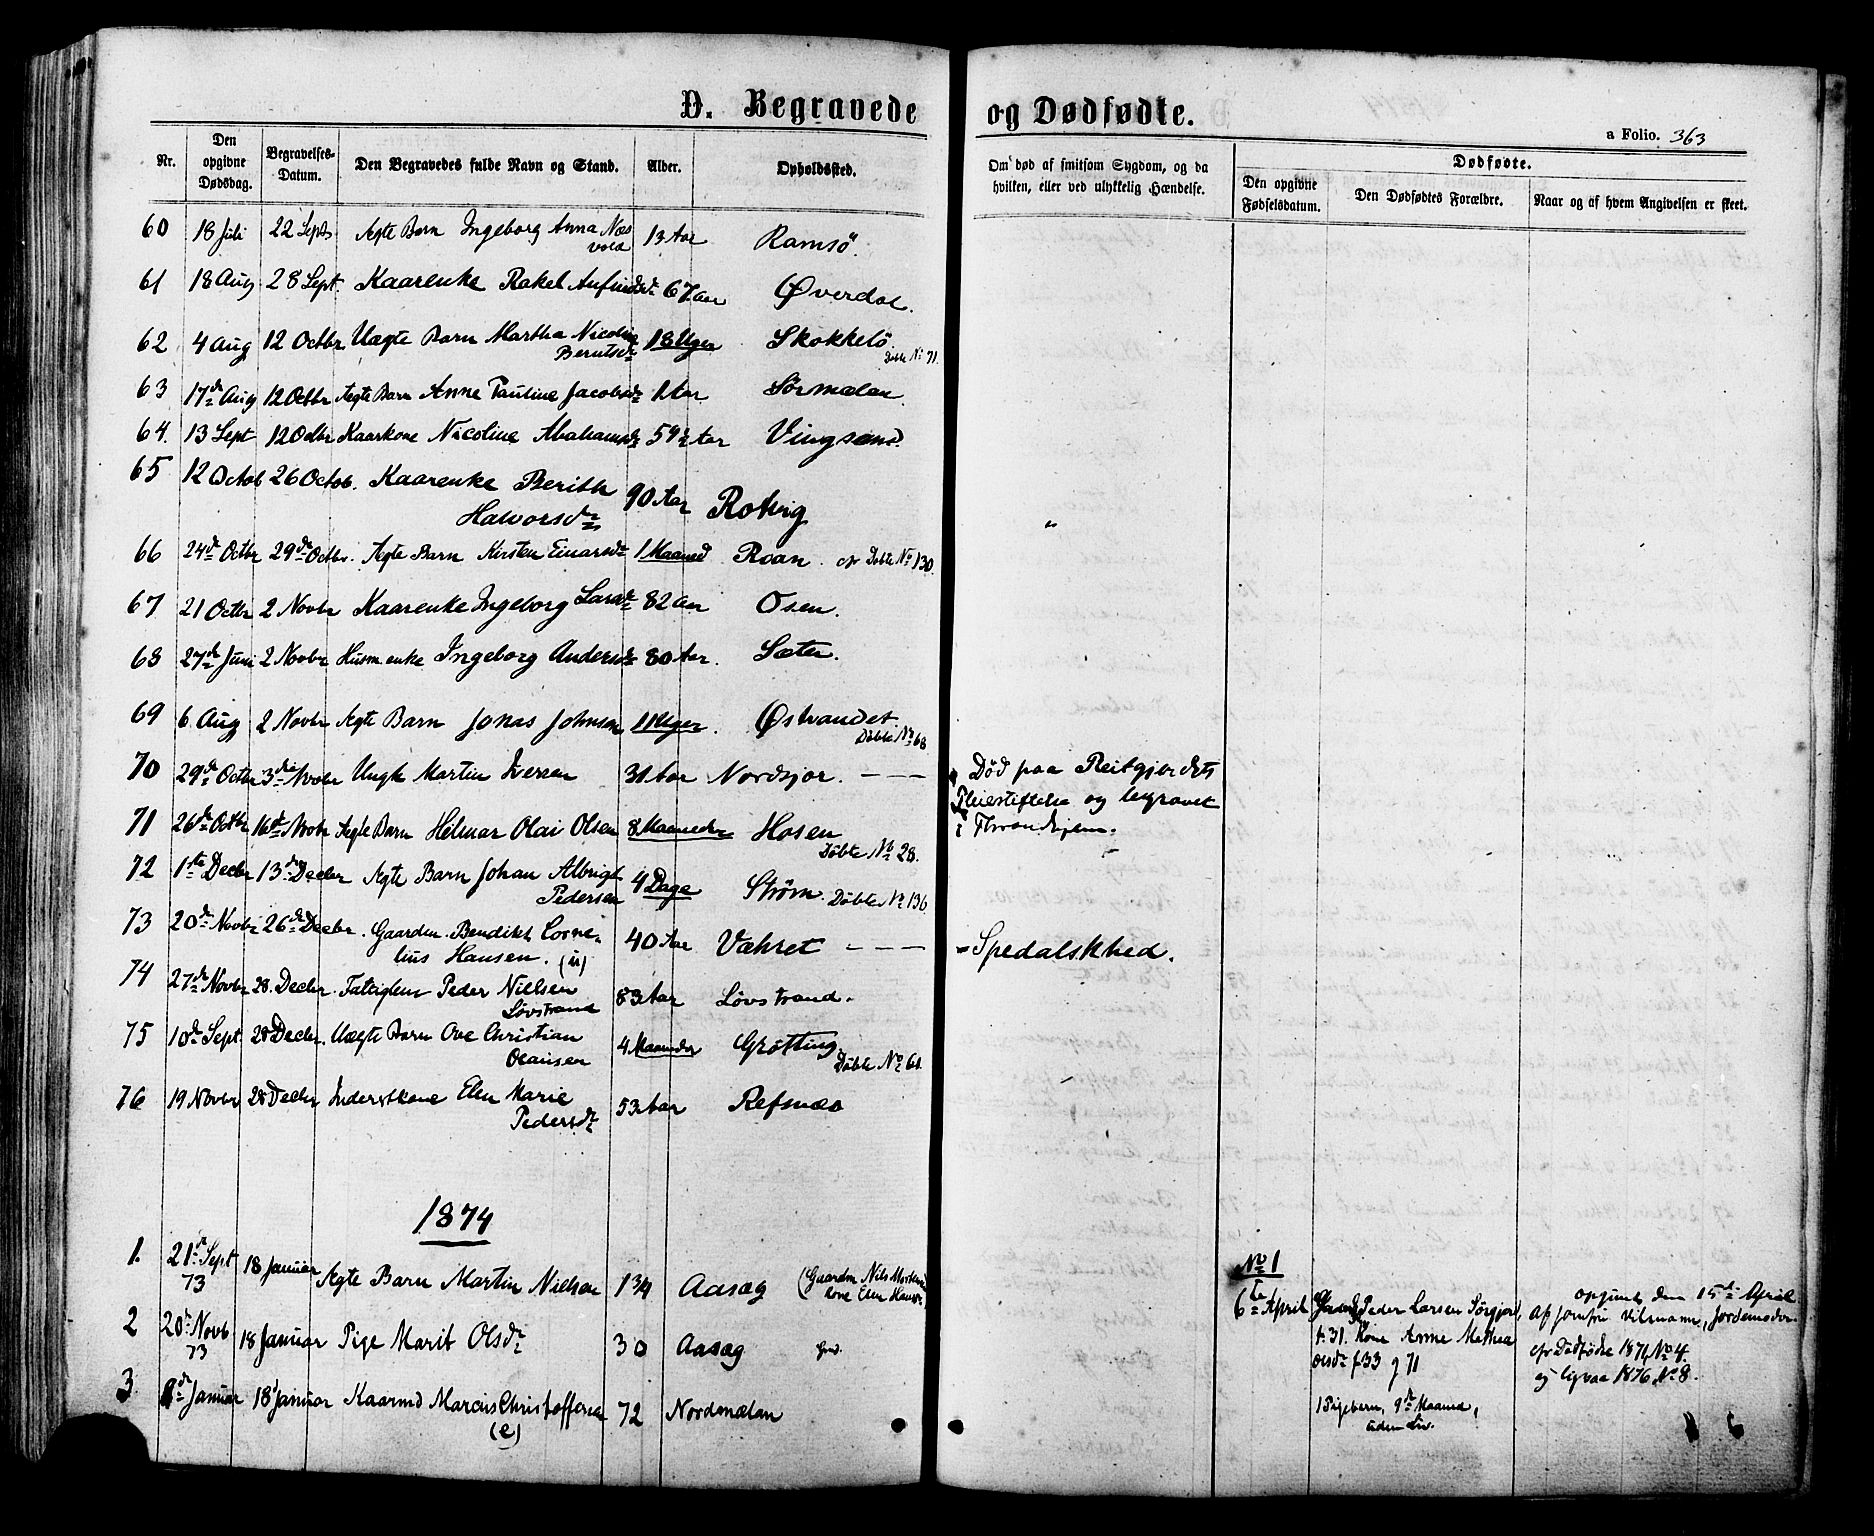 D. Begravede og Dødfødte.
a Folio. 363
Nr. | Den opgivne Dødsdag. | Begravelses-Datum. | Den Begravedes fulde Navn og Stand. | Alder. | Opholdssted. | Om død af smitsom Sygdom, og da hvilken, eller ved ulykkelig Hændelse. | Dødfødte. | Den opgivne Fødselsdatum. | Den Dødfødtes Forældre. | Naar og af hvem Angivelsen er skeet.
60 18 Juli 22 Septb Ægte Barn Ingeborg Anna Næs 13 Aar Ramsö.
vold
61 18 Aug 28 Sept. Kaarenke Rakel Anfindsdr 67 Aar Øverdal.
62 4 Aug 12 Octbr Uægte Barn Martha Nicolin 18 Uger Skokkelö.
Berntsdr Döbte No 71.
63 17de Aug 12 Octbr Ægte Barn Anne Pauline Jacobsdr 1 Aar Sörmælan
64. 13 Sept 12 Octbr Kaarkone Nicoline Abahamsdr 59½ Aar Vingsand.
65 12 Octob 26 Octob. Kaarenke Berith 90 Aar Rotvig
Halvorsdr
66 24de Octbr 29de Octbr. Ægte Barn Kirsten Einarsdr 1 Maaned Roan. cfr Döbte No 130.
67 21 Octbr 2 Novbr Kaarenke Ingeborg Larsdr 82 Aar Osen.
68 27de Juni 2 Novbr Husm enke Ingeborg Andersdr 80 Aar. Sæter.
69 6. Aug 2 Novbr Ægte Barn Jonas Johnsen 11 Uger. Østvandet.
Döbte No 68
70 29de Octbr 3die Novbr Ungk Martin Iversen 31 Aar Nordsjor. — — — Död paa Reitgjerdets
Pleiestiftelse og begravet
i Throndhjem.
71 26de Octbr 16de Novbr Ægte Barn Helmar Olai Olsen 8 Maaneder Hosen
Döbte No 28.
72 1ste Decbr 13de Decbr Ægte Barn Johan Albrigt 4 Dage Ström. Döbte No 136
Pedersen
73 20de Novbr 26de Decbr. Gaardm. Bendikt Corne- 40 Aar Vahret — — — Spedalskhed.
lius Hansen. (u)
74 27de Novbr 28. Decbr. Fattiglem Peder Nielsen 83 Aar Lövstrand.
Lövstrand
75 10de Sept 28 Decbr. Uægte Barn Ove Christian 4 Maaneder Grötting.
Olausen Döbte No 61.
76 19 Novbr 28 Decbr Inderstkone Elen Marie 53 Aar Refsnæs
Pedersdr
1874
1. 21de Sept 18 Januar Ægte Barn Martin Nielsen 1 3/4 Aasæg (Gaardm Nils Mortens
73 Kone Elen Hansdr)
2 20de Novb. 18 Januar Pige Marit Olsdr 30 Aasæg
73
3 Januar 18 Januar Kaarmd Marcus Christoffersen 72 Nordmælan
(e)
No 1
6te April Gaardm Peder Larsen Sörgjerd,
f. 31. Kone Anne Mathea
Olsdr f 33 g 71
1 Pigebarn, 9de Maaned,
uden Liv.
opgivet den 15de April
af jomfru Vilsmann, Jordemoder.
cfr Dödfödte 1871 No 4.
og ligsaa 1876 No 8.